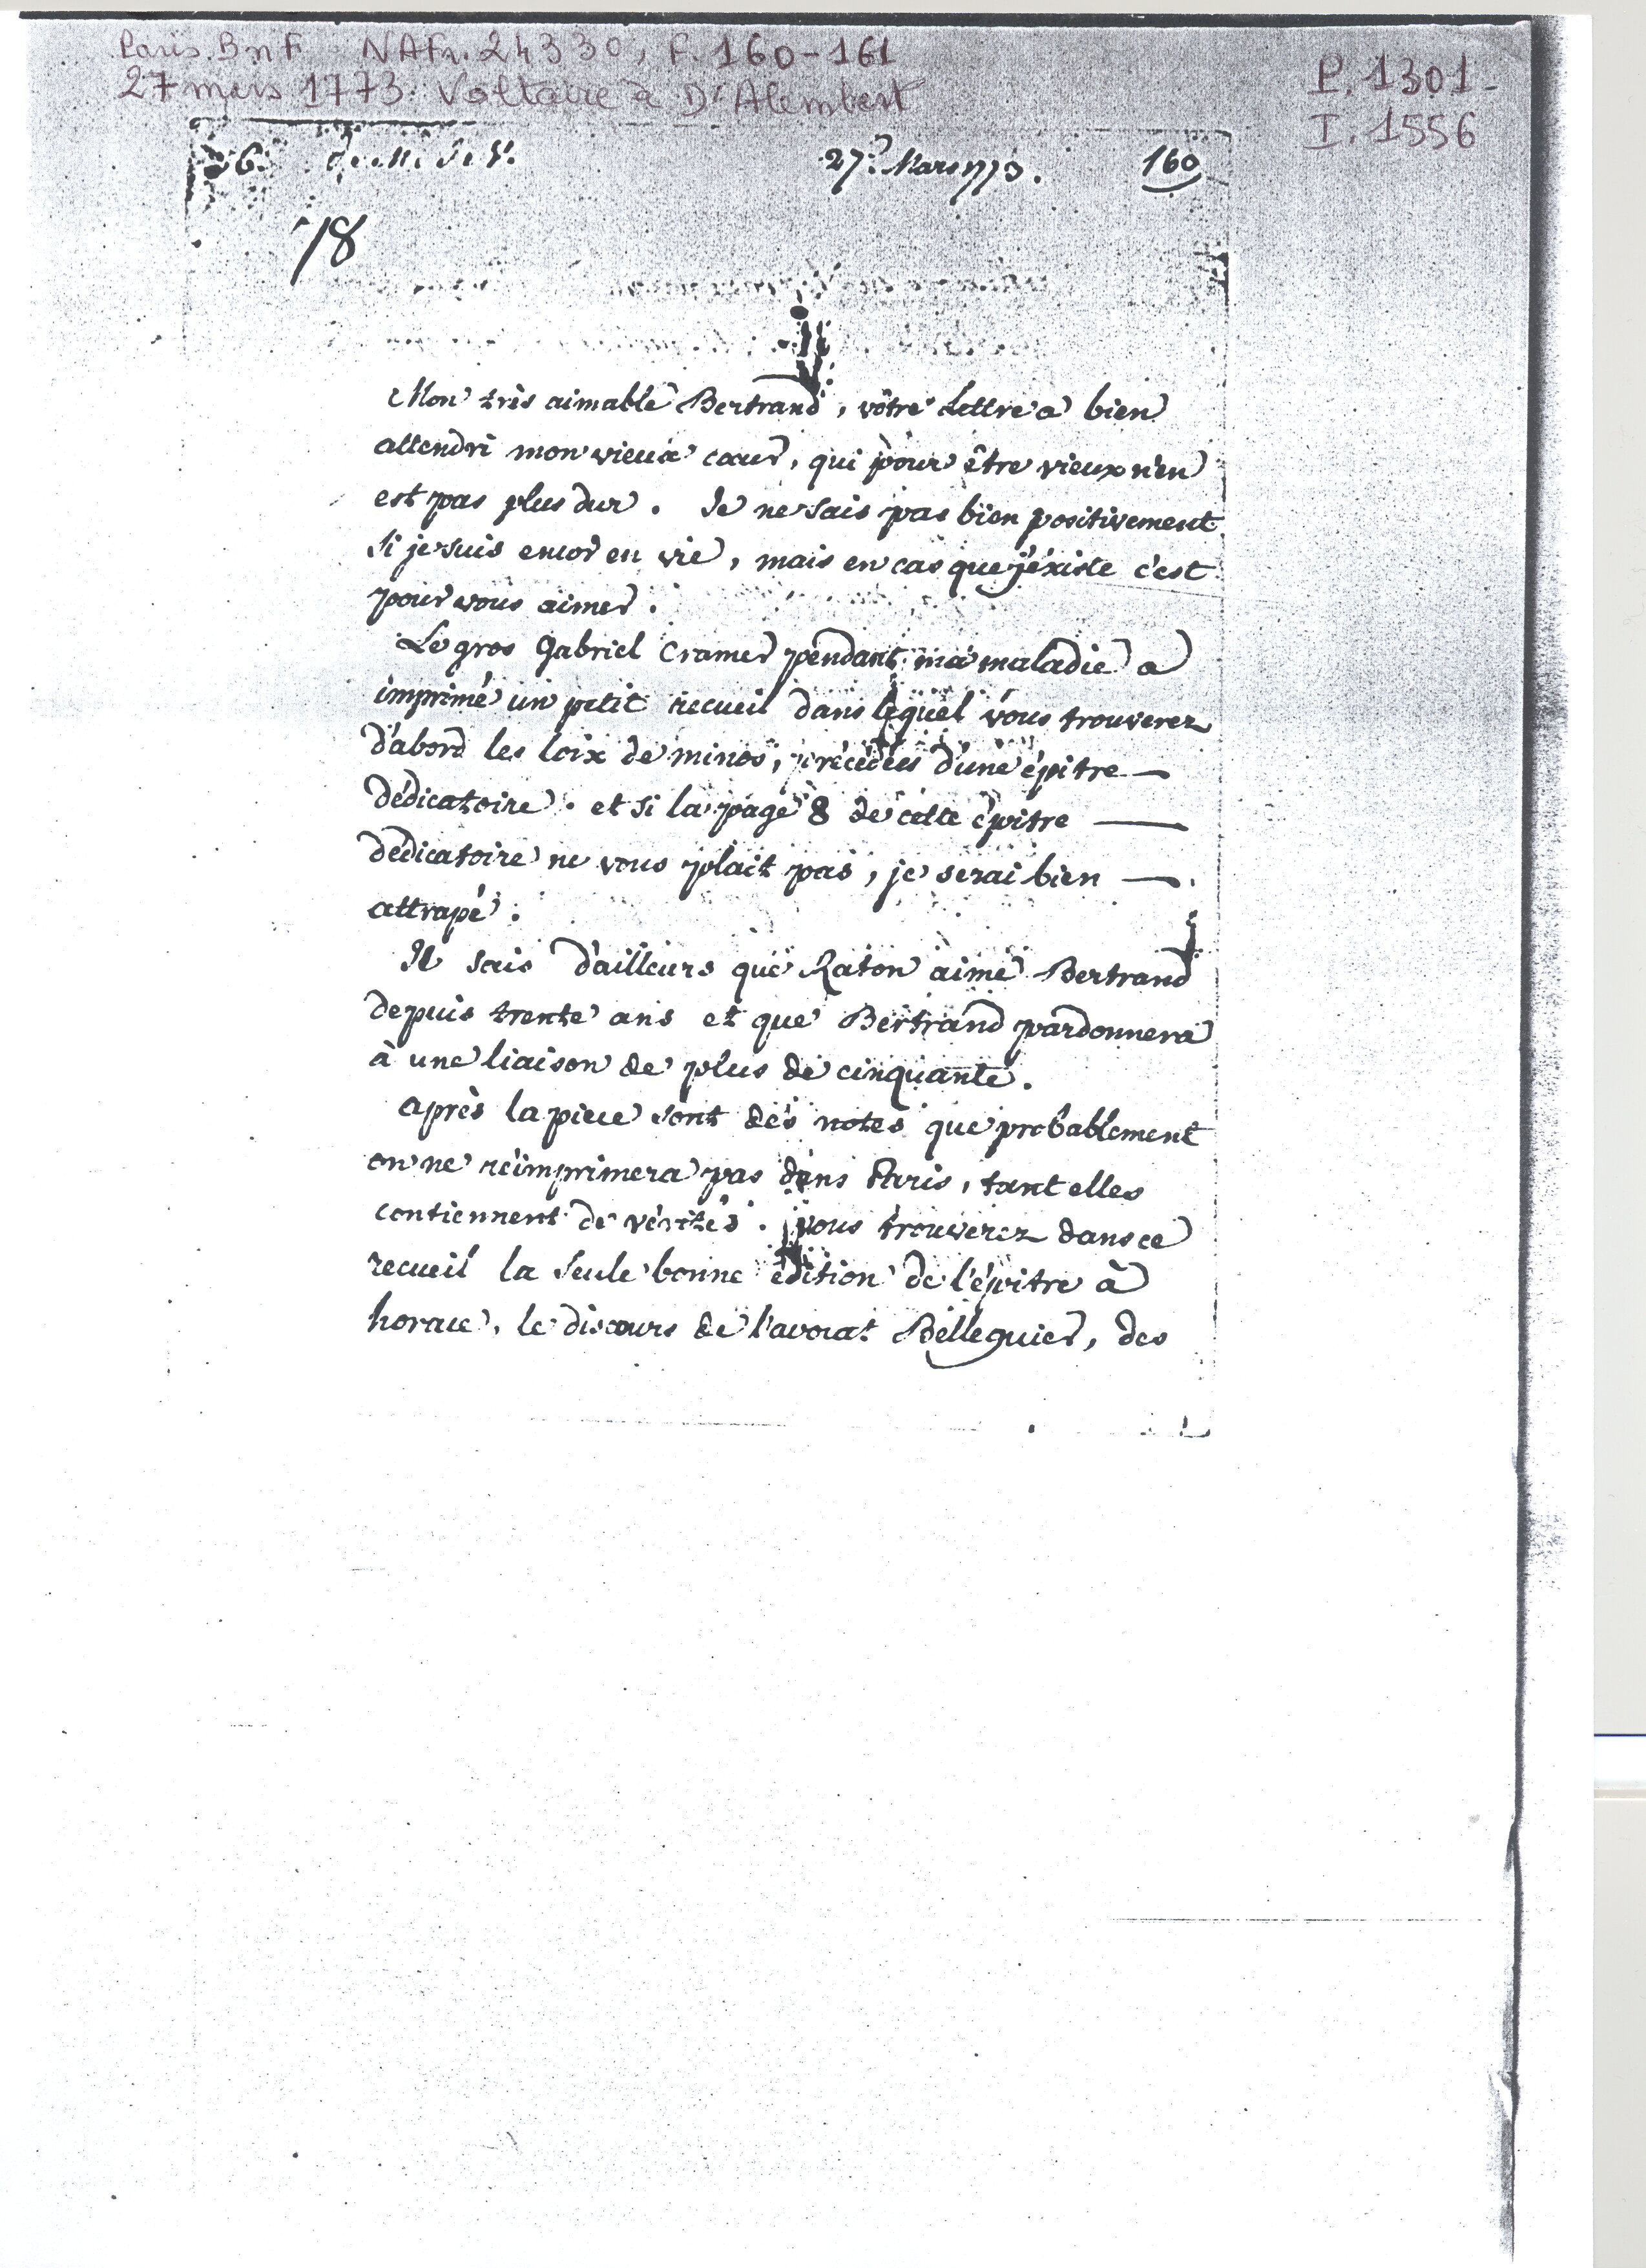 Paris. BnF NAFr. 24330, F. 160-161
27 mars 1773. Voltaire à D'Alembert
P. 1301-
I. 1556
de M. de V.
27e. Mars 1773.
160
78
Mon très aimable Bertrand, vôtre Lettre a bien
attendri mon vieux cœur, qui pour être vieux n'en
est pas plus dur. Je ne sais pas bien positivement
si je suis encor en vie, mais en cas que j'éxiste c'est
pour vous aimer.
Le gros Gabriel Cramer pendant ma maladie a
imprimé un petit recueil dans lequel vous trouverez
d'abord les loix de minos, précédées d'une épitre —
dédicatoire. et si la page 8 de cette épitre —
dédicatoire ne vous plait pas, je serai bien —
attrapé.
Je sais d'ailleurs que Raton aime Bertrand
depuis trente ans et que Bertrand pardonnera
à une liaison de plus de cinquante.
après la piece sont des notes que probablement
on ne réimprimera pas dans Paris, tant elles
contiennent de vérités. vous trouverez dans ce
recueil la seule bonne édition de l'épitre à
horace, le discours de l'avocat Belleguier, des